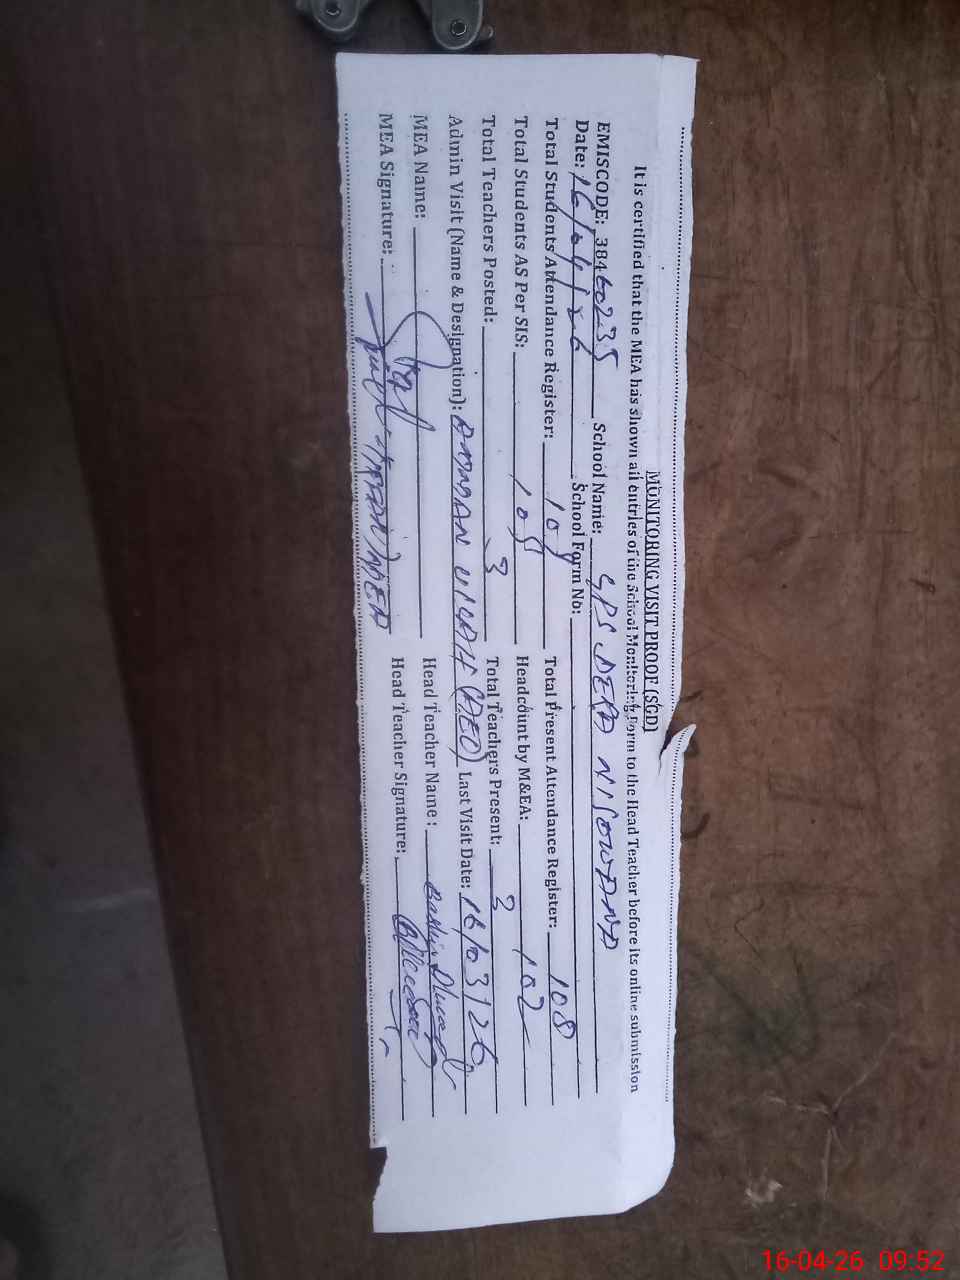 MONITORING VISIT PROOF (SGD)
It is certified that the MEA has shown all entries of the School Monitoring Form to the Head Teacher before its online submission
EMISCODE: 38460235 School Name: GPS DERA NISOWANA
Date: 16/04/26 School Form No:
Total Students Attendance Register: 109 Total Present Attendance Register: 108
Total Students AS Per SIS: 109 Headcount by M&EA: 102
Total Teachers Posted: 3 Total Teachers Present: 3
Admin Visit (Name & Designation): (AEO) Last Visit Date: 16/03/26
MEA Name: Head Teacher Name:
MEA Signature: Head Teacher Signature:
16-04-26 09:52